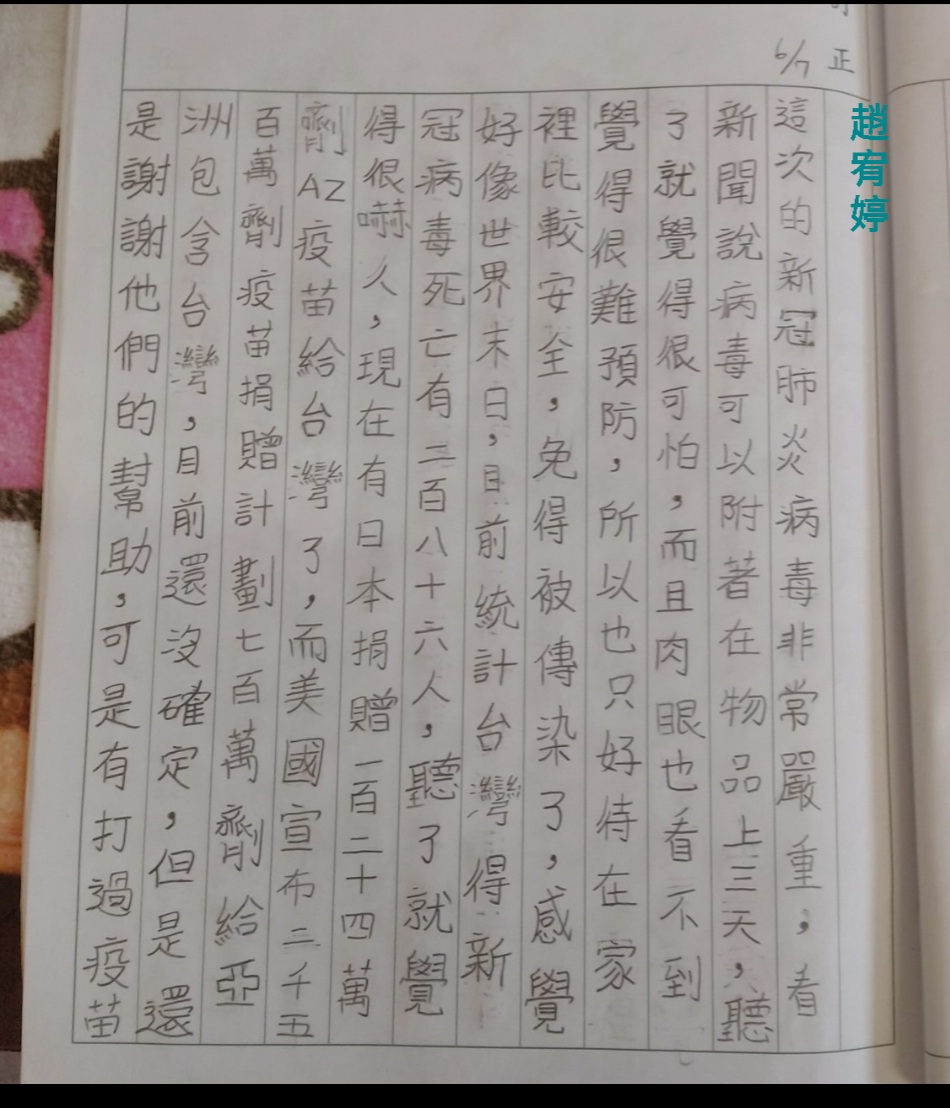 訂正
6/7
趙宥婷
這次的新冠肺炎病毒非常嚴重，看
新聞說病毒可以附著在物品上三天，聽
了就覺得很可怕，而且肉眼也看不到
覺得很難預防，所以也只好待在家
裡比較安全，免得被傳染了，感覺
好像世界末日，目前統計台灣得新
冠病毒死亡有二百八十六人，聽了就覺
得很嚇人，現在有日本捐贈一百二十四萬
劑AZ疫苗給台灣了，而美國宣布二千五
百萬劑疫苗捐贈計劃七百萬劑給亞
洲包含台灣，目前還沒確定，但是還
是謝謝他們的幫助，可是有打過疫苗